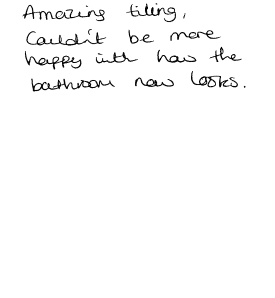 Amazing tiling,
Couldn't be more
happy with how the
bathroom now looks.